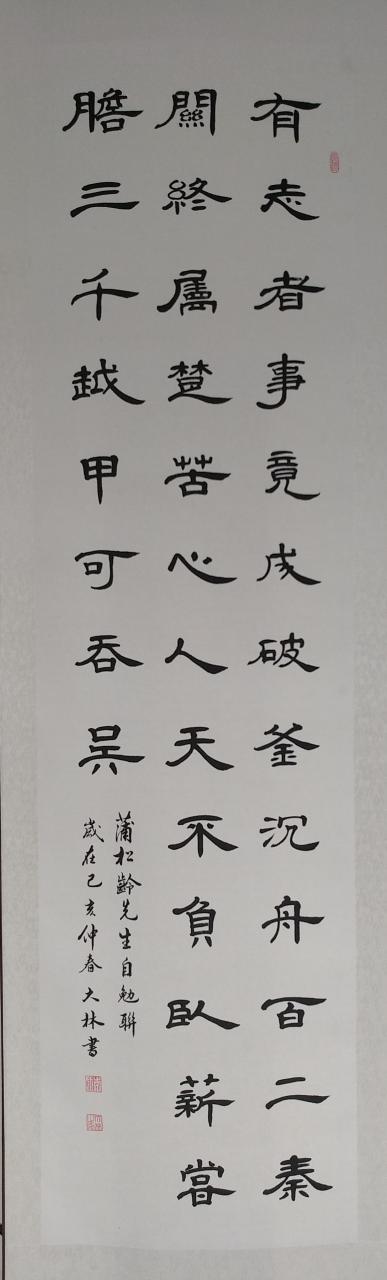 有志者事竟成破釜沉舟百二秦
關終屬楚苦心人天不負臥薪嘗
膽三千越甲可吞吴
蒲松齡先生自勉聯
歲在己亥仲春大林書